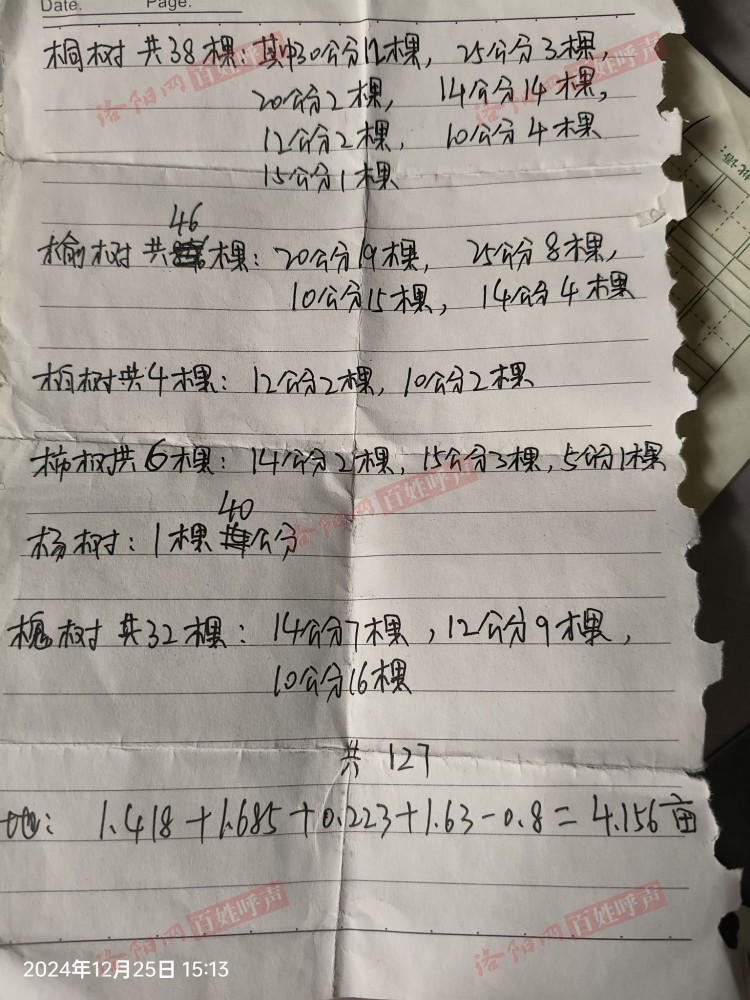 Date. Page.
桐树 共38棵: 其中30公分12棵, 25公分3棵,
20公分2棵, 14公分14棵,
12公分2棵, 10公分4棵
15公分1棵
46
榆树 共棵: 20公分19棵, 25公分8棵,
10公分15棵, 14公分4棵
柏树共4棵: 12公分2棵, 10公分2棵
柿树共6棵: 14公分2棵, 15公分3棵, 5公分1棵
40
杨树: 1棵公分
槐树 共32棵: 14公分7棵, 12公分9棵,
10公分16棵
共 127
地: 1.418+1.685+0.223+1.63-0.8=4.156亩
洛阳网 百姓呼声
洛阳网 百姓呼声
洛阳网 百姓呼声
洛阳网 百姓呼声
洛阳网 百姓呼声
2024年12月25日 15:13